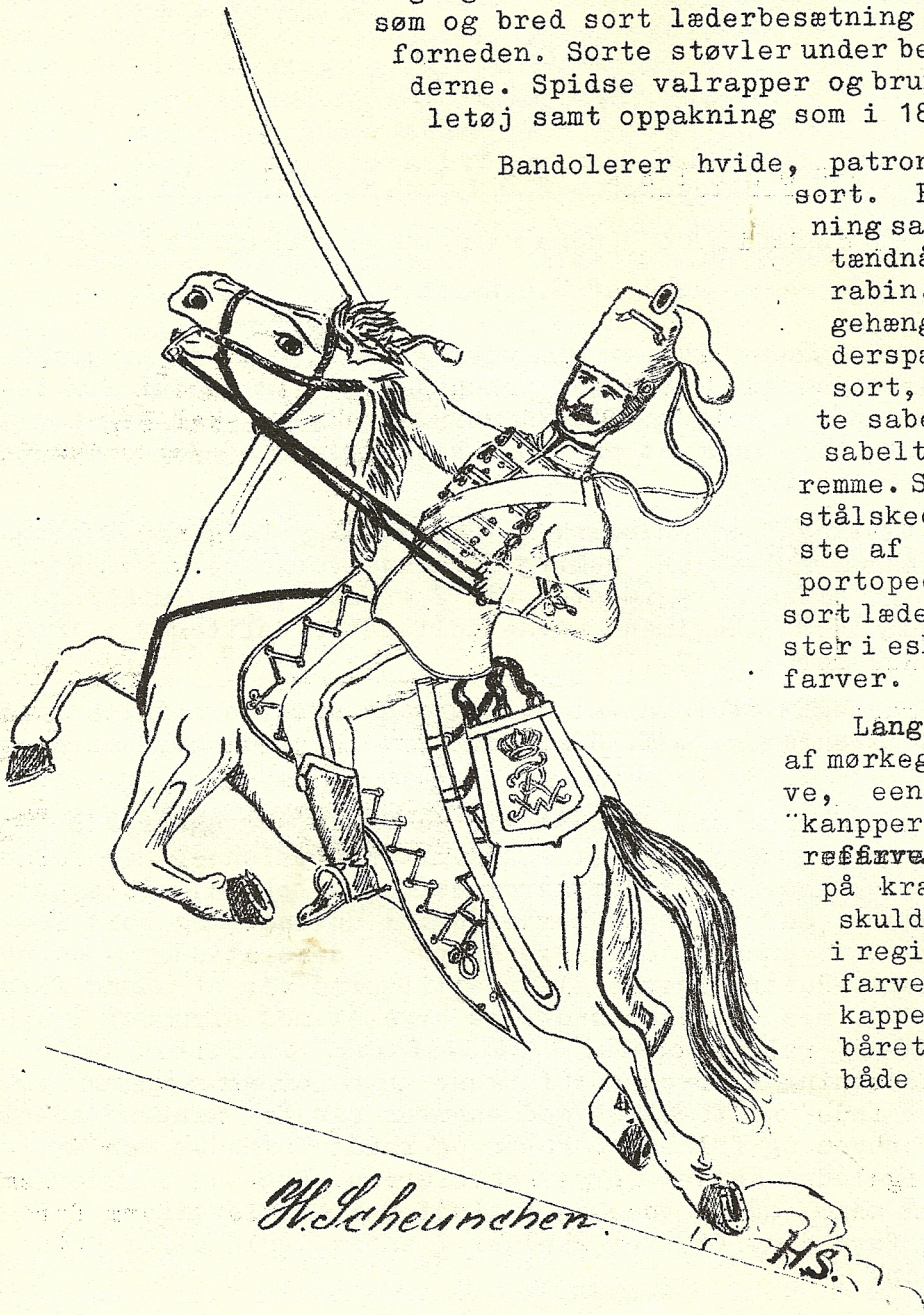 søm og bred sort læderbesætning
forneden. Sorte støvler under be
derne. Spidse valrapper og bru
letøj samt oppakning som i 18
Bandolerer hvide, patron
sort.
ning sa
tændnå
rabin.
gehæng
derspa
sort,
te sabe
sabelt
remme. S
stålske
ste af
portope
sort læde
ster i es
farver.
Lang
af mørkeg
ve, een
"kanpper
på kra
skuld
i regi
farve
kappe
båret
både
H. Scheunchen.
H.S.